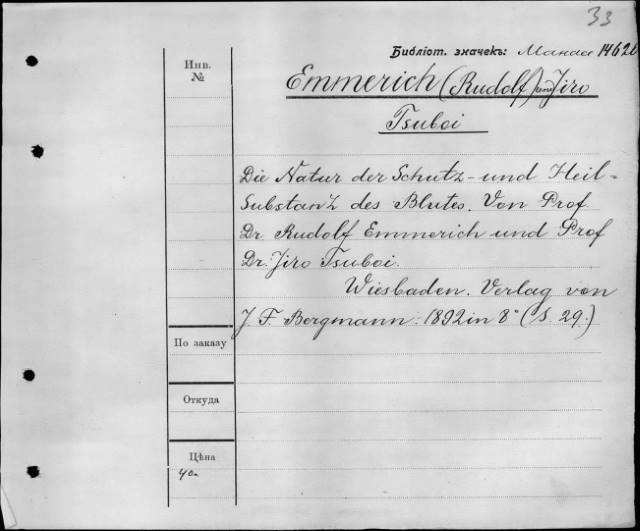 33
Библіот. значекъ: Манаса 14620
Инв.
№
Emmerich (Rudolf) und Jiro
Tsuboi
Die Natur der Schutz- und Heil-
Substanz des Blutes. Von Prof
Dr. Rudolf Emmerich und Prof
Dr. Jiro Tsuboi.
Wiesbaden. Verlag von
J. F. Bergmann. 1892 in 8° (S. 29.)
По заказу
Откуда
Цѣна
40